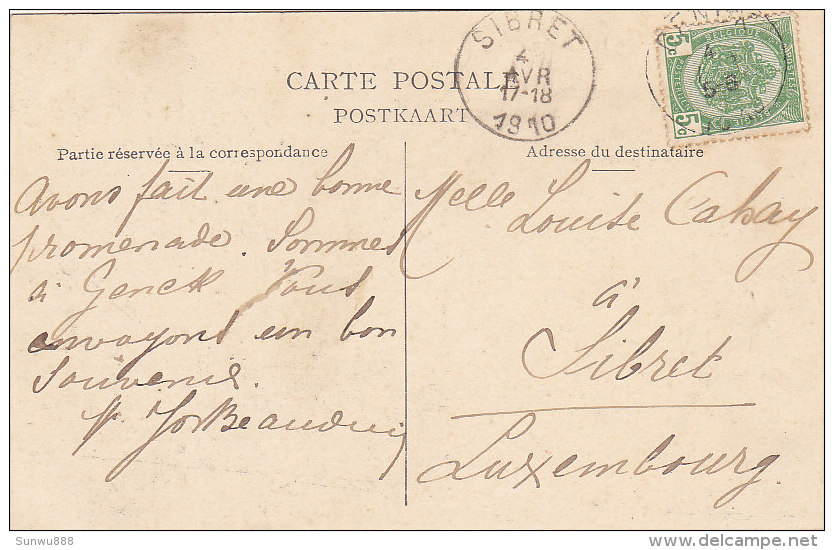 SIBRET
4
AVR
17-18
1910
BELGIQUE
5c
5c
CARTE POSTALE
POSTKAART
Partie réservée à la correspondance
Avons fait une bonne
promenade. Sommes
à Genck Vous
envoyons un bon
souvenir.
Adresse du destinataire
Melle Louise Cahay
à
Sibret
Luxembourg
Sunwu888
delcampe.net